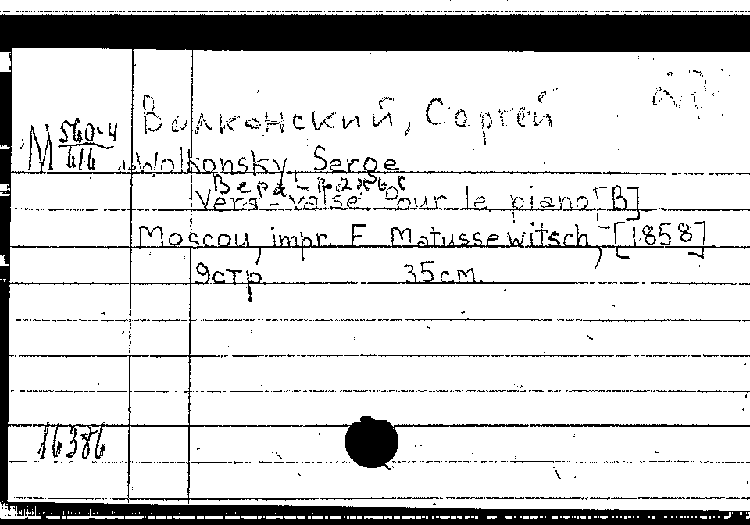 Волконский, Сергей
М 560-4/616
Wolkonsky Serge
Вера
Vera-valse pour le piano [B]
Moscou, impr. F. Matussewitsch, [1858]
9стр. 35см.
16386